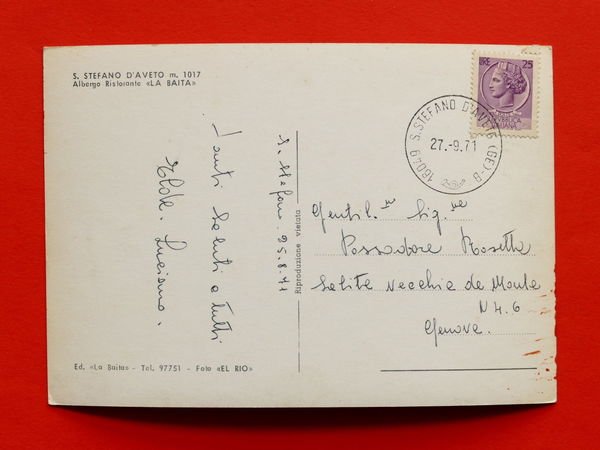 S. STEFANO D'AVETO m. 1017
Albergo Ristorante «LA BAITA»
Tanti saluti a tutti
Elde. Luciano.
S. Stefano. 25.8.71
Riproduzione vietata
LIRE 25
REPUBBLICA
ITALIANA
16049 S.STEFANO D'AVETO (GE)-B
27.-9.71
Gentil.me Sig.ne
Possadore Rosetta
Salita vecchia de Monte
N 4.6
Genova.
Ed. «La Baita» - Tel. 97751 - Foto «EL RIO»